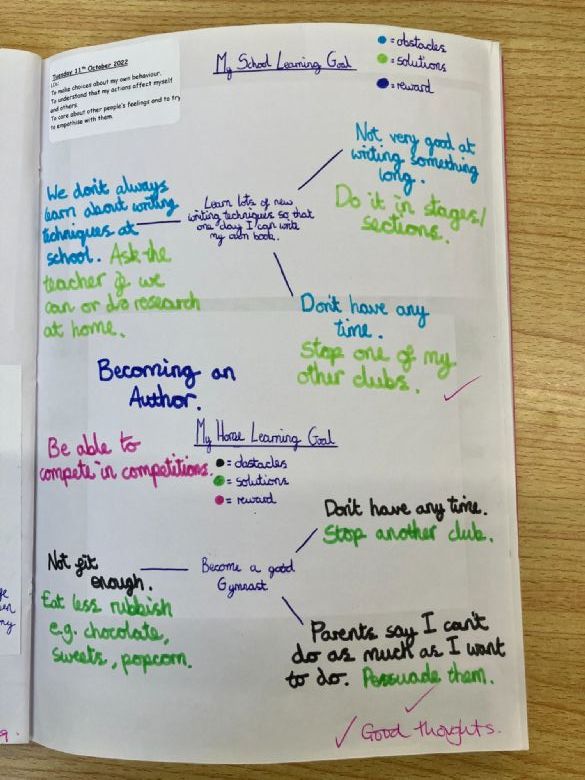 Tuesday 11th October 2022
LOs:
To make choices about my own behaviour.
To understand that my actions affect myself
and others.
To care about other people's feelings and to try
to empathise with them.
My School Learning Goal
= obstacles
= solutions
= reward
Not very good at
writing something
long.
Do it in stages/
sections.
We don't always
learn about writing
techniques at
school. Ask the
teacher if we
can or do research
at home.
Learn lots of new
writing techniques so that
one day I can write
my own book.
Don't have any
time.
Stop one of my
other clubs.
Becoming an
Author.
My Home Learning Goal
= obstacles
= solutions
= reward
Be able to
compete in competitions.
Don't have any time.
Stop another club.
Not fit
enough.
Eat less rubbish
e.g. chocolate,
sweets, popcorn.
Become a good
Gymnast
Parents say I can't
do as much as I want
to do. Persuade them.
Good thoughts.